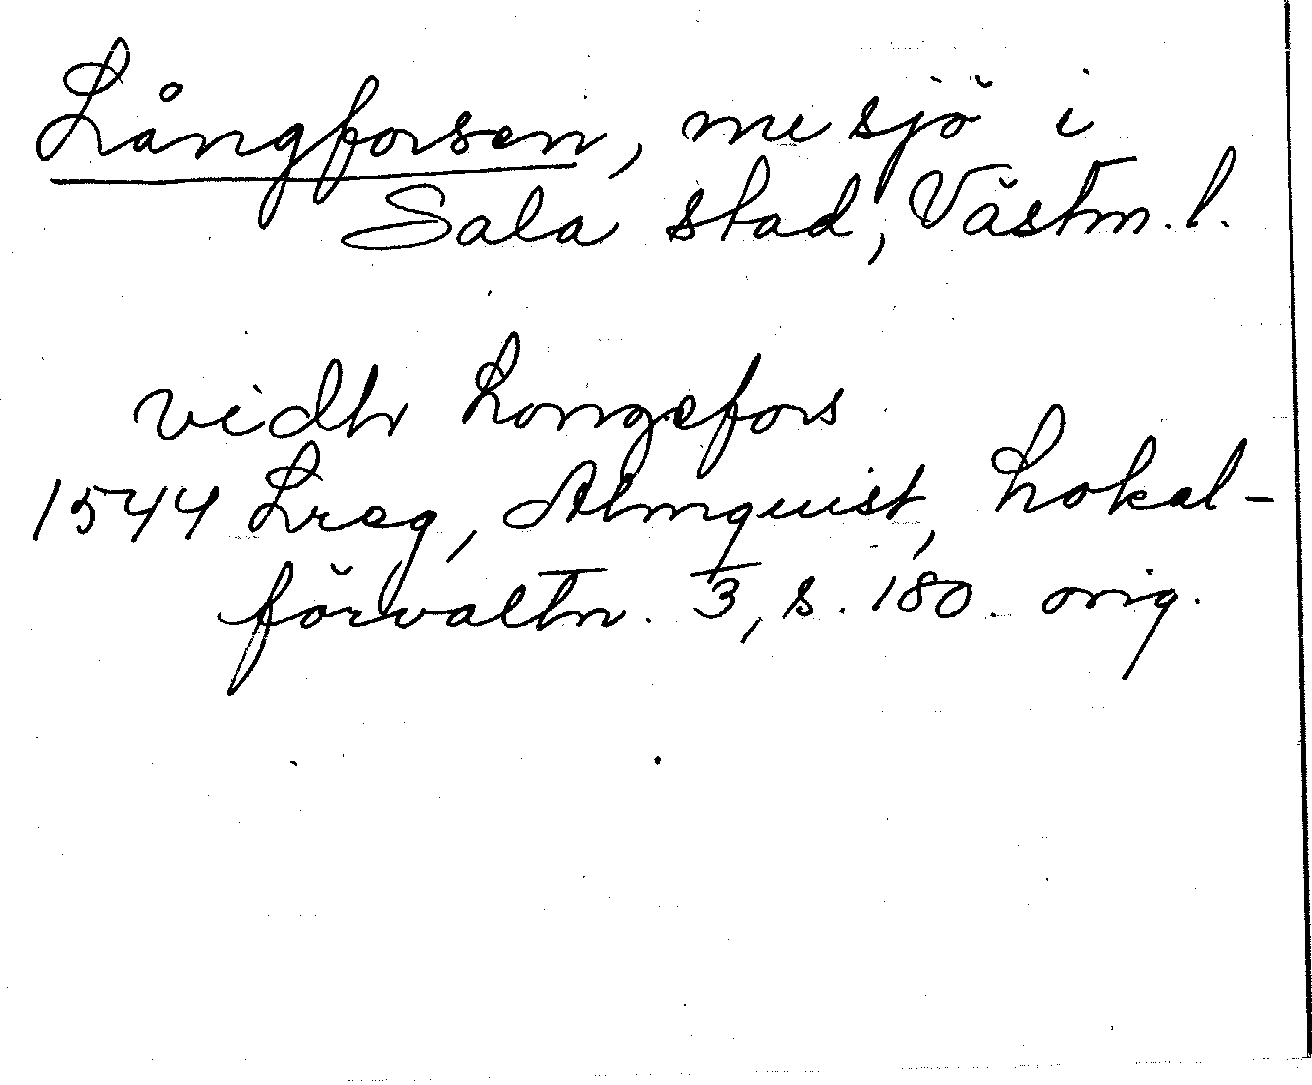 Långforsen, nu sjö i
Sala stad, Västm. l.
vidh Longefors
1544 Lreg, Almquist, Lokal-
förvaltn. 3, s. 180. orig.